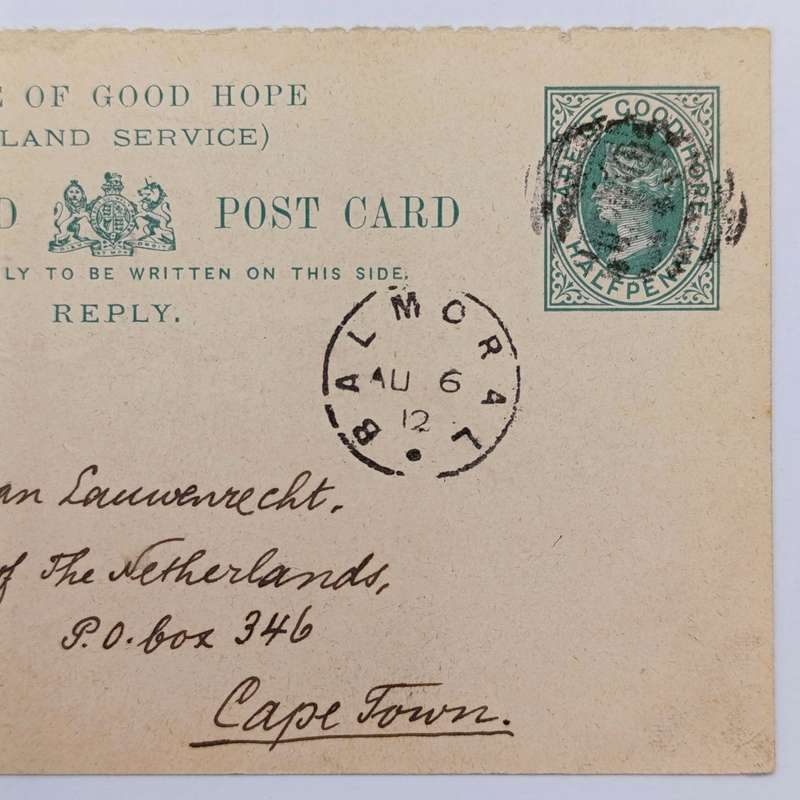 E OF GOOD HOPE
LAND SERVICE)
D POST CARD
LY TO BE WRITTEN ON THIS SIDE.
REPLY.
CAPE OF GOOD HOPE
HALFPENNY
BALMORAL
AU 6
12
an Lauwenrecht.
of The Netherlands,
P.O. box 346
Cape Town.